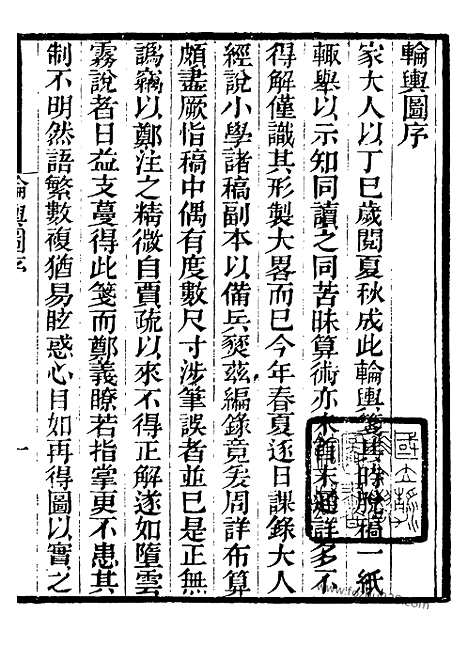 輪輿圖序
家大人以丁巳歲閱夏秋成此輪輿箋其時脫稿一紙
輒舉以示知同讀之同苦昧算術亦未通詳多不
得解僅識其形製大畧而巳今年春夏逐日課錄大人
經說小學諸稿副本以備兵燹茲編錄竟爰周詳布算
頗盡厥恉稿中偶有度數尺寸涉筆誤者並巳是正無
譌竊以鄭注之精微自賈疏以來不得正解遂如墮雲
霧說者日益支蔓得此箋而鄭義瞭若指掌更不患其
制不明然語繁數複猶易眩惑心目如再得圖以實之
輪輿圖序
一